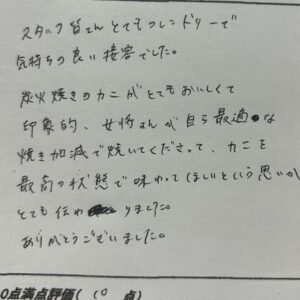 スタッフ皆さんとてもフレンドリーで
気持ちの良い接客でした。
炭火焼きのカニがとてもおいしくて
印象的、女将さんが自ら最適な
焼き加減で焼いてくださって、カニを
最高の状態で味わってほしいという思いが
とても伝わりました。
ありがとうございました。
0点満点評価( 10 点)